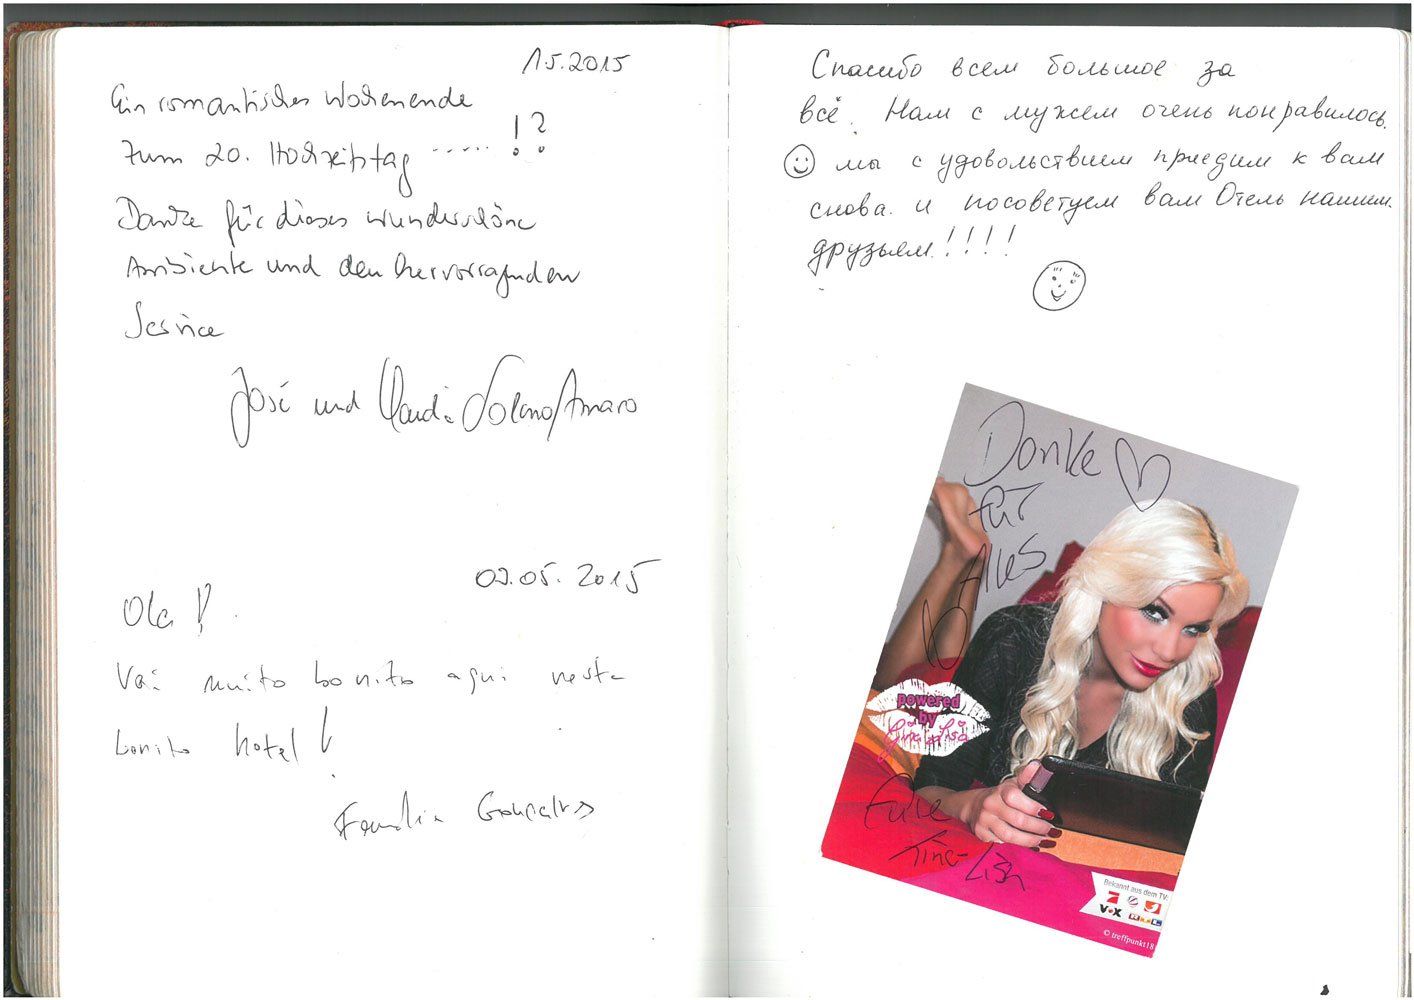 1.5.2015
Ein romantisches Wochenende
zum 20. Hochzeitstag ...... !?
Danke für dieses wunderschöne
Ambiente und den hervorragenden
Service
José und Claudia Solano/Amaro
09.05.2015
Ola!
Vai muito bonito aqui neste
bonito hotel!
Familia Gonçalves
Спасибо всем большое за
всё. Нам с мужем очень понравилось.
мы с удовольствием приедим к вам
снова. и посоветуем вам Отель нашим.
друзьям!!!!
Danke
für
Alles
powered
by
Gina-Lisa
Eure
Gina-Lisa
Bekannt aus dem TV:
7
VOX RTL
© treffpunkt18